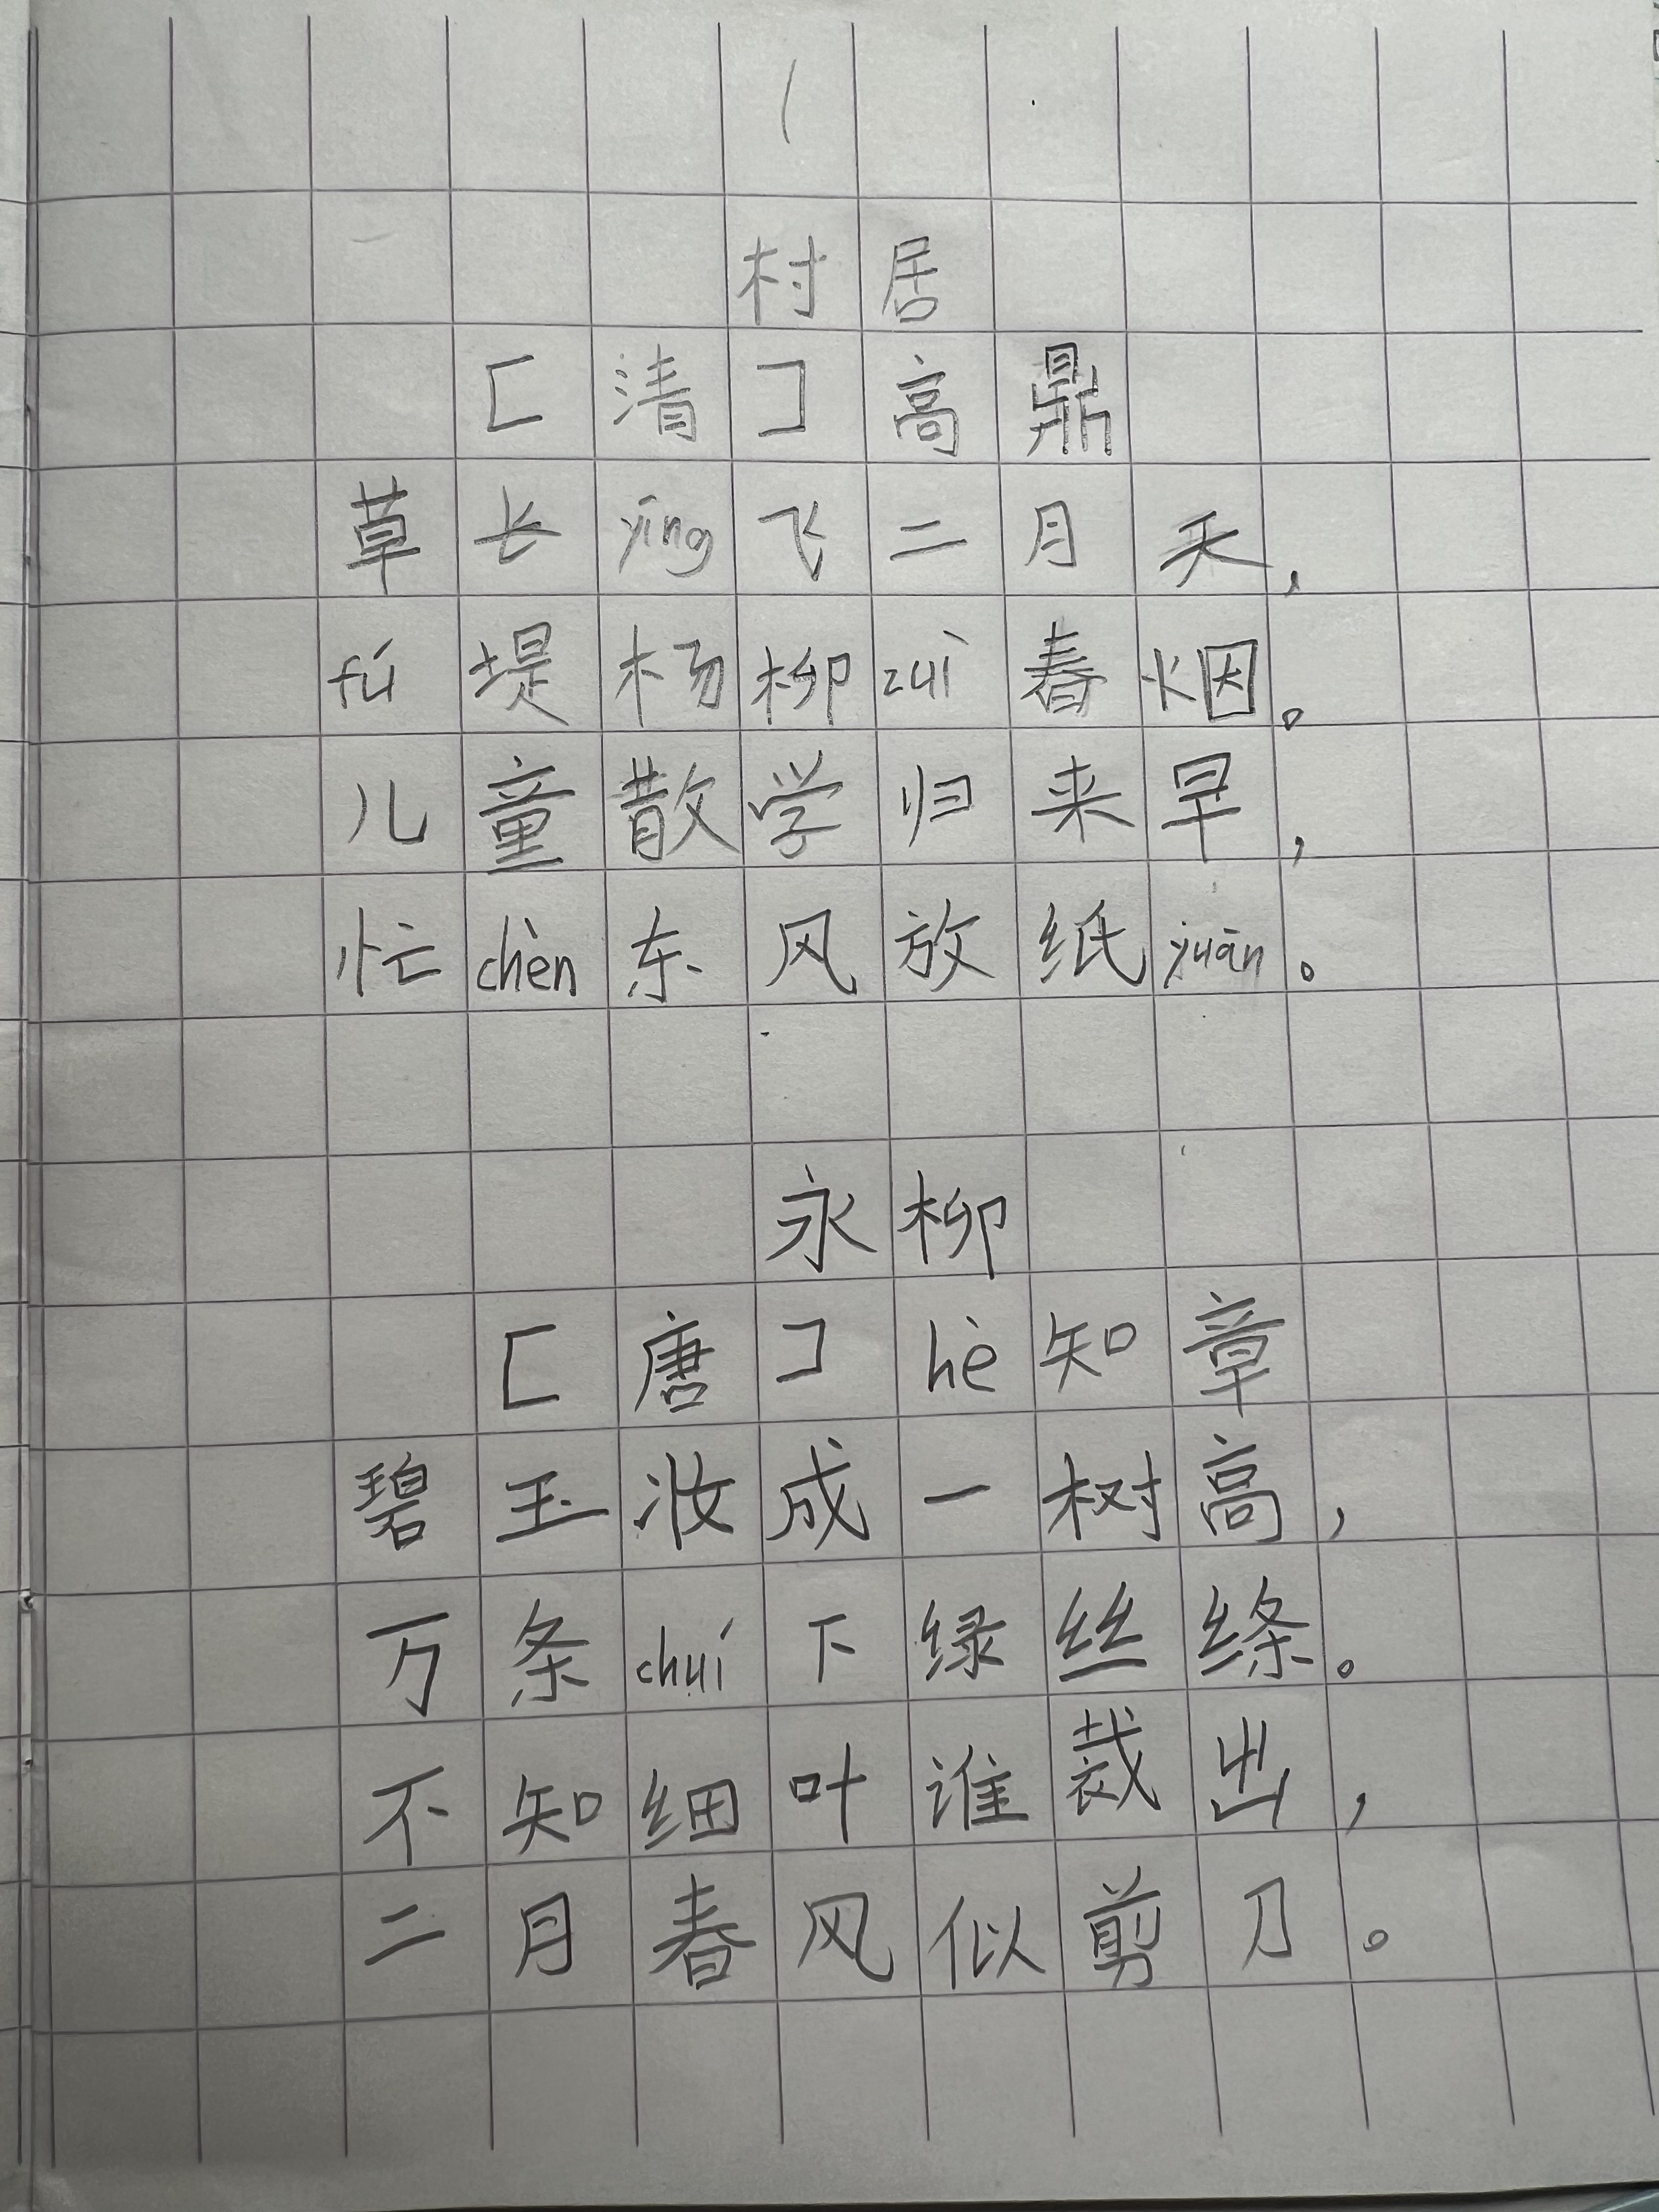 村居
[清]高鼎
草长yīng飞二月天,
fú堤杨柳zuì春烟。
儿童散学归来早,
忙chèn东风放纸yuān。
永柳
[唐]hè知章
碧玉妆成一树高,
万条chuí下绿丝绦。
不知细叶谁裁出,
二月春风似剪刀。